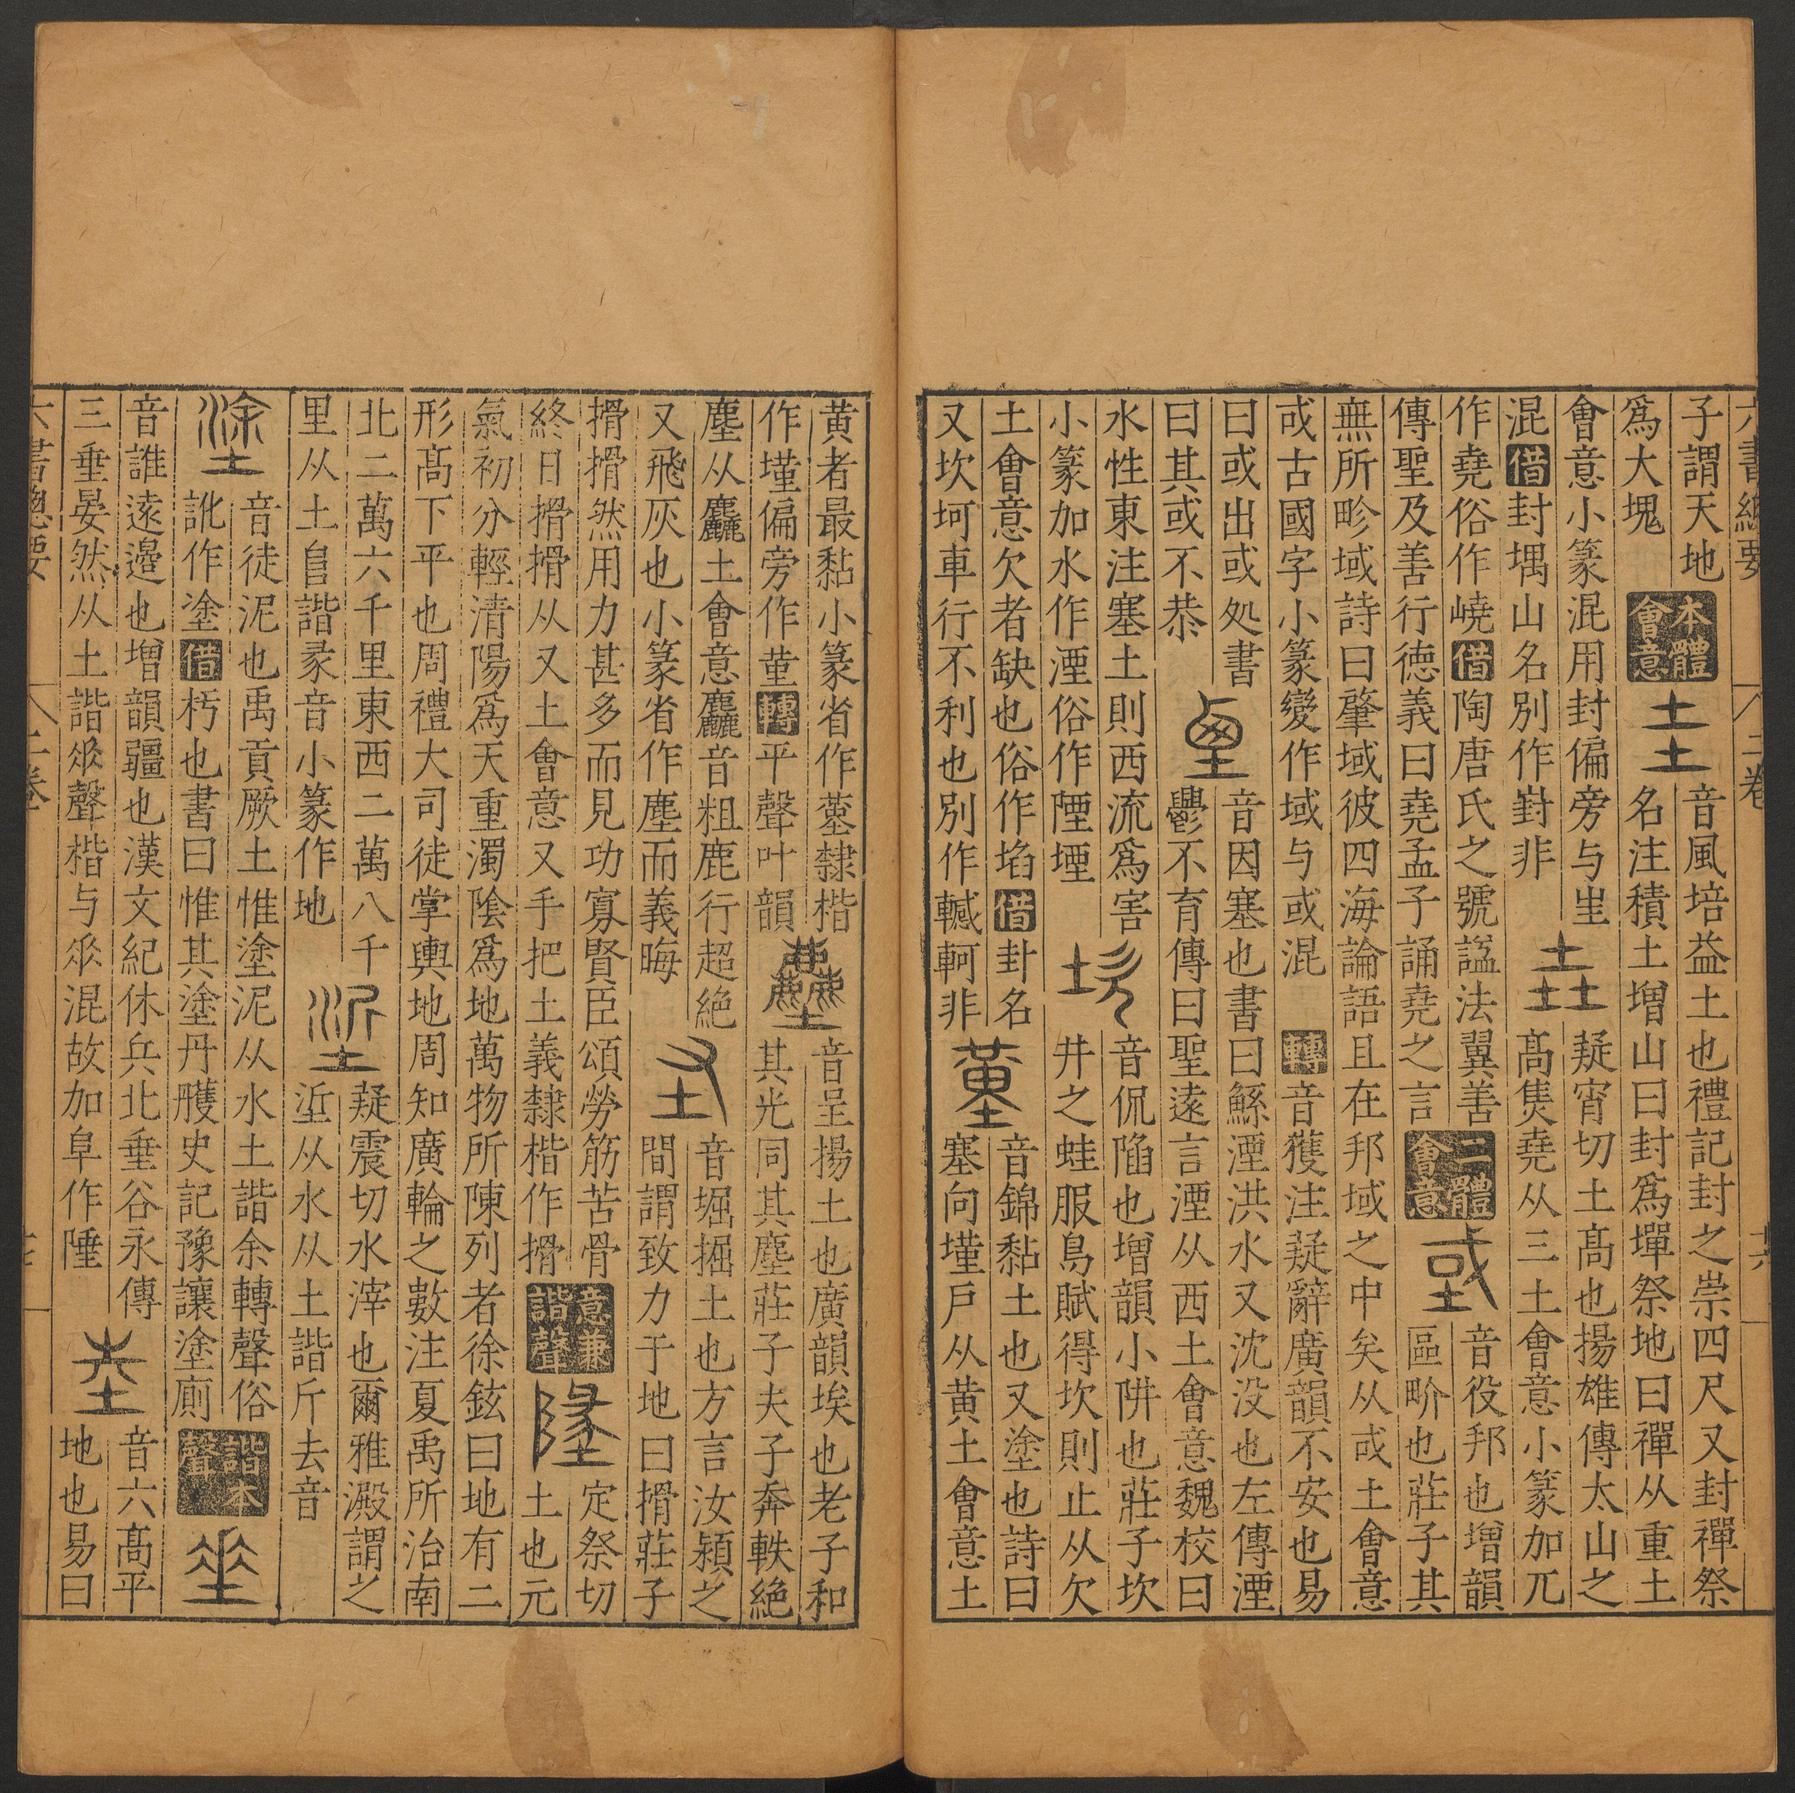 六書總要 二卷 十六
子謂天地
爲大塊
本體會意
土土
音風培益土也禮記封之崇四尺又封禪祭
名注積土增山曰封爲墠祭地曰禪从重土
會意小篆混用封偏旁与坒
混借封堣山名別作崶非
垚
疑宵切土高也揚雄傳太山之
高堯从三土會意小篆加兀
作堯俗作嶢借陶唐氏之號謚法翼善
傳聖及善行德義曰堯孟子誦堯之言
二體會意
域
音役邦也增韻
區畍也莊子其
無所畛域詩曰肇域彼四海論語且在邦域之中矣从或土會意
或古國字小篆變作域与或混轉音獲注疑辭廣韻不安也易
曰或出或处書
曰其或不恭
垔
音因塞也書曰鯀湮洪水又沈没也左傳湮
鬱不育傳曰聖遠言湮从西土會意魏校曰
水性東注塞土則西流爲害
小篆加水作湮俗作陻堙
坎
音侃陷也增韻小阱也莊子坎
井之蛙服鳥賦得坎則止从欠
土會意欠者缺也俗作埳借卦名
又坎坷車行不利也別作轗軻非
堇
音錦黏土也又塗也詩曰
塞向墐戶从黄土會意土
黄者最黏小篆省作蓳隸楷
作墐偏旁作堇轉平聲叶韻
塵
音呈揚土也廣韻埃也老子和
其光同其塵莊子夫子奔軼絶
塵从麤土會意麤音粗鹿行超絶
又飛灰也小篆省作塵而義晦
圣
音堀掘土也方言汝潁之
間謂致力于地曰搰莊子
搰搰然用力甚多而見功寡賢臣頌勞筋苦骨
終日搰搰从又土會意又手把土義隸楷作搰
意兼諧聲
墬
定祭切
土也元
氣初分輕清陽爲天重濁陰爲地萬物所陳列者徐鉉曰地有二
形高下平也周禮大司徒掌輿地周知廣輪之數注夏禹所治南
北二萬六千里東西二萬八千
里从土𨸏諧彖音小篆作地
垽
疑震切水滓也爾雅澱謂之
垽从水从土諧斤去音
塗
音徒泥也禹貢厥土惟塗泥从水土諧余轉聲俗
訛作塗借杇也書曰惟其塗丹雘史記豫讓塗廁
諧本聲
垂
音誰遠邊也增韻疆也漢文紀休兵北垂谷永傳
三垂晏然从土諧𠂹聲楷与𠂹混故加阜作陲
坴
音六高平
地也易曰
六書總要 二卷